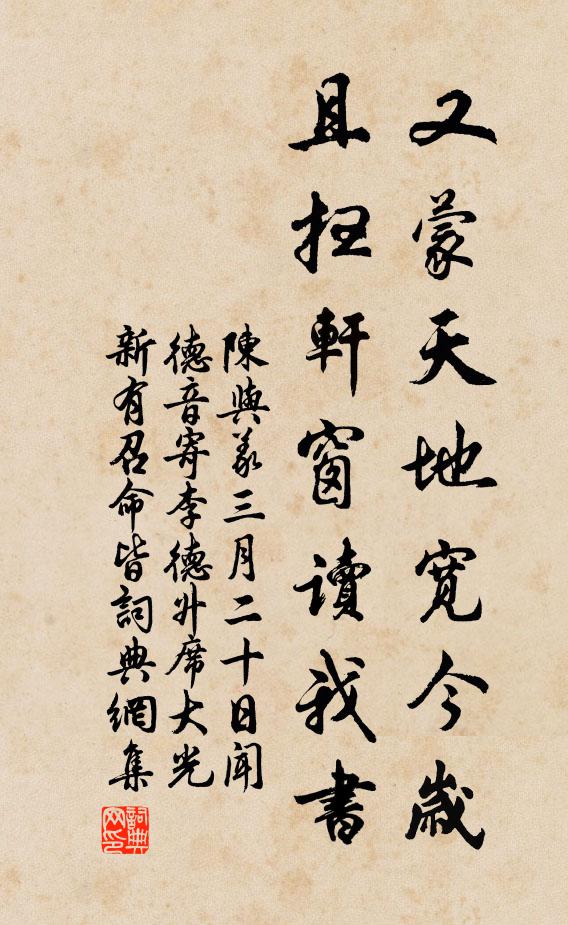 又蒙天地寬今歲
且掃軒窗讀我書
陳與義三月二十日聞
德音寄李德升席大光
新有召命皆詞典網集
詞典
网印